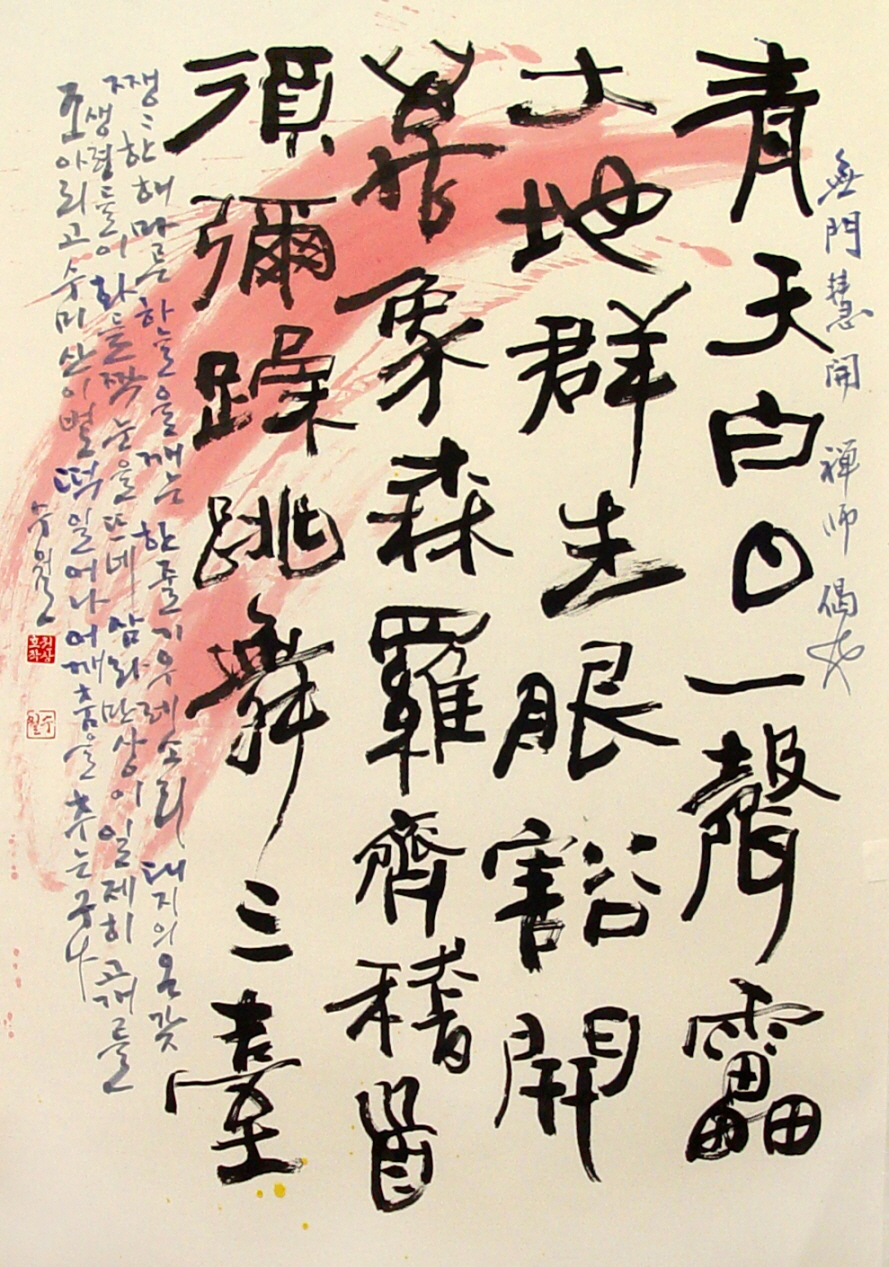 無門慧開 禪師 偈
青天白日一聲靁
大地群生眼豁開
萬象森羅齊稽首
須彌躁跳舞三臺
쨍〻한 해 마른 하늘을 깨는 한줄기 우레소리 대지의 온갖
생령들이 화들짝 눈을 뜨네 삼라만상이 일제히 고개를
조아리고 수미산이 벌떡 일어나 어깨춤을 추는구나
수월
권상호작
수월